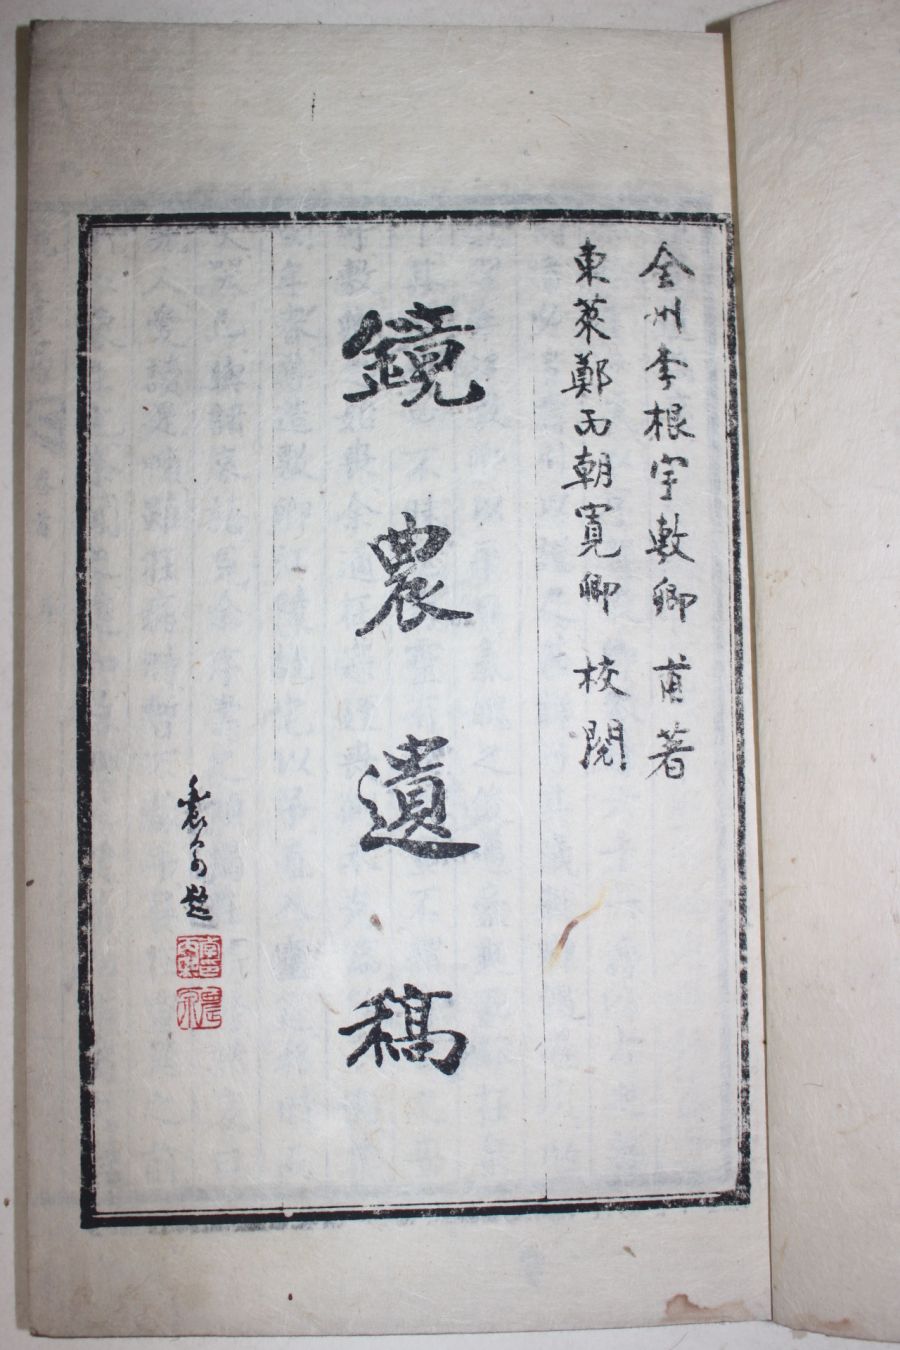 全州李根宇敷卿甫著
東萊鄭丙朝寬卿校閱
鏡農遺稿
題